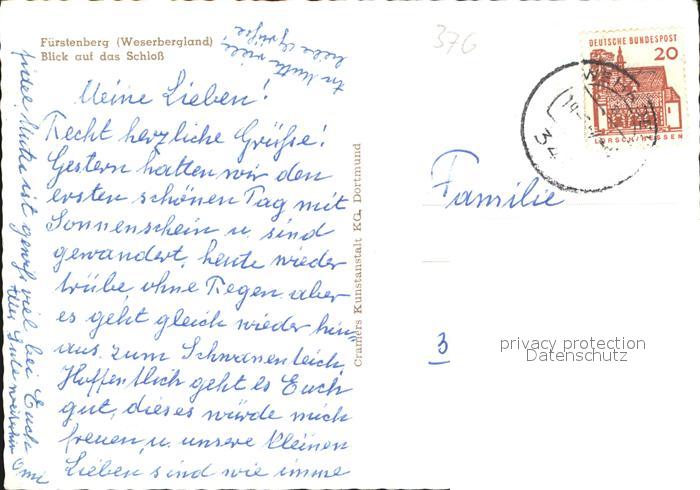 Fürstenberg (Weserbergland)
Blick auf das Schloß
An Mutti viele
liebe Grüße
Meine Lieben!
Recht herzliche Grüße!
Gestern hatten wir den
ersten schönen Tag mit
Sonnenschein u. sind
gewandert, heute wieder
trübe, ohne Regen aber
es geht gleich wieder hin-
aus, zum Schwanenteich.
Hoffentlich geht es Euch
gut, dieses würde mich
freuen, u. unsere kleinen
Lieben sind wie imme
fidel. Mutti ist gewiß viel bei Euch
Alles Gute weiterhin Omi
Cramers Kunstanstalt KG. Dortmund
376
DEUTSCHE BUNDESPOST
20
LORSCH/HESSEN
34
Familie
3
privacy protection
Datenschutz